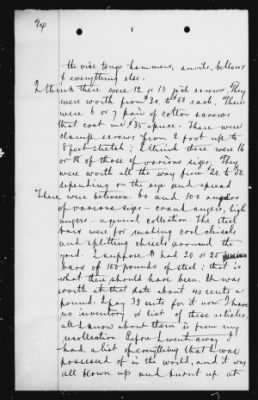 94
the vise tongs hammers, anvils, bellows
& everything else.
I think there were 12 or 13 jack screws. They
were worth from $30 to $50 each. There
were 6 or 7 pair of cotton screws
that cost me $35 apiece. There were
clamp screws from 1 foot up to
8 feet stretch; I think there were 16
or 18 of those of various sizes. They
were worth all the way from 20 to
depending on the size and spread
There were between 80 and 100 augers
of various sizes - coard augers, high
augers - a general collection. The steel
bars were for making cool chisels
and splitting chisels around the
yard. I suppose I had 20 or 25
bars of 100 pounds of steel; that is
what there should have been. It was
worth at that date about 40 cents a
pound. I pay 33 cents for it now. I have
no inventory or list of those articles.
all I know about them is from my
recollection. Before I went away I
had a list of everything that I was
possessed of in the world, and it was
all blown up and burnt up at